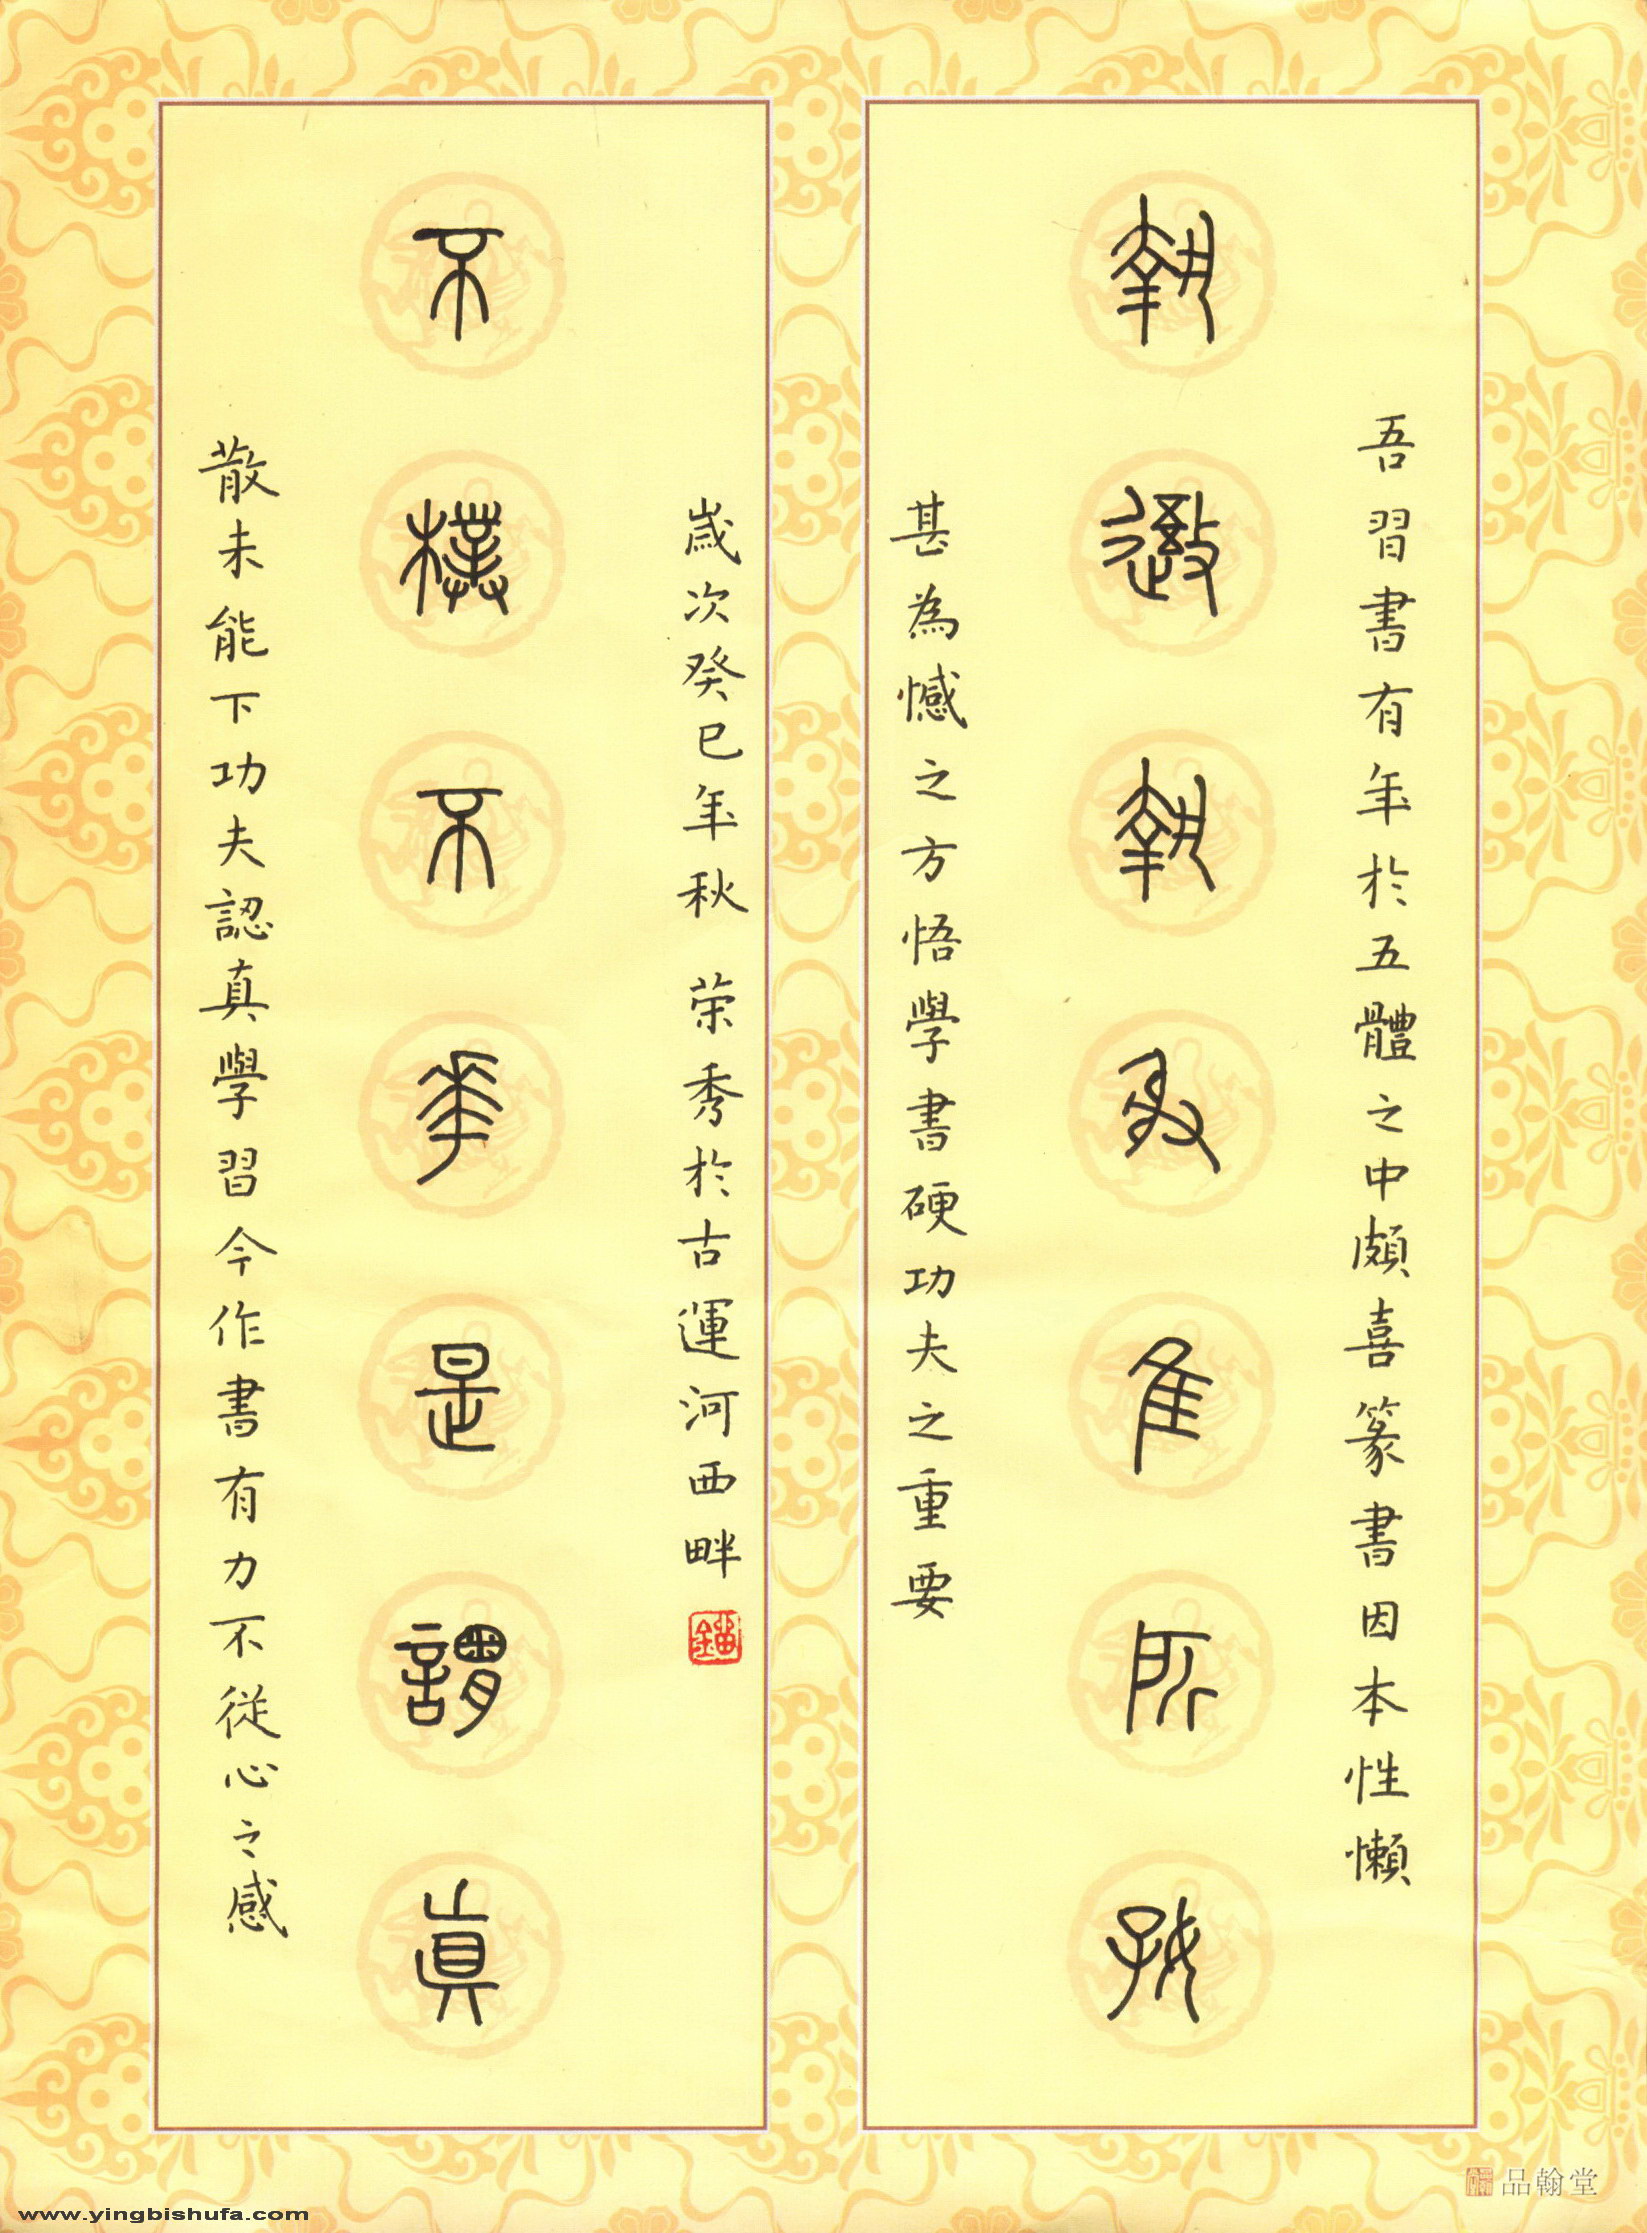 執邀執隹所好
不樸不華是謂真
吾習書有年於五體之中頗喜篆書因本性懶
散未能下功夫認真學習今作書有力不從心之感
甚為憾之方悟學書硬功夫之重要
歲次癸巳年秋 荣秀於古運河西畔
品翰堂
www.yingbishufa.com